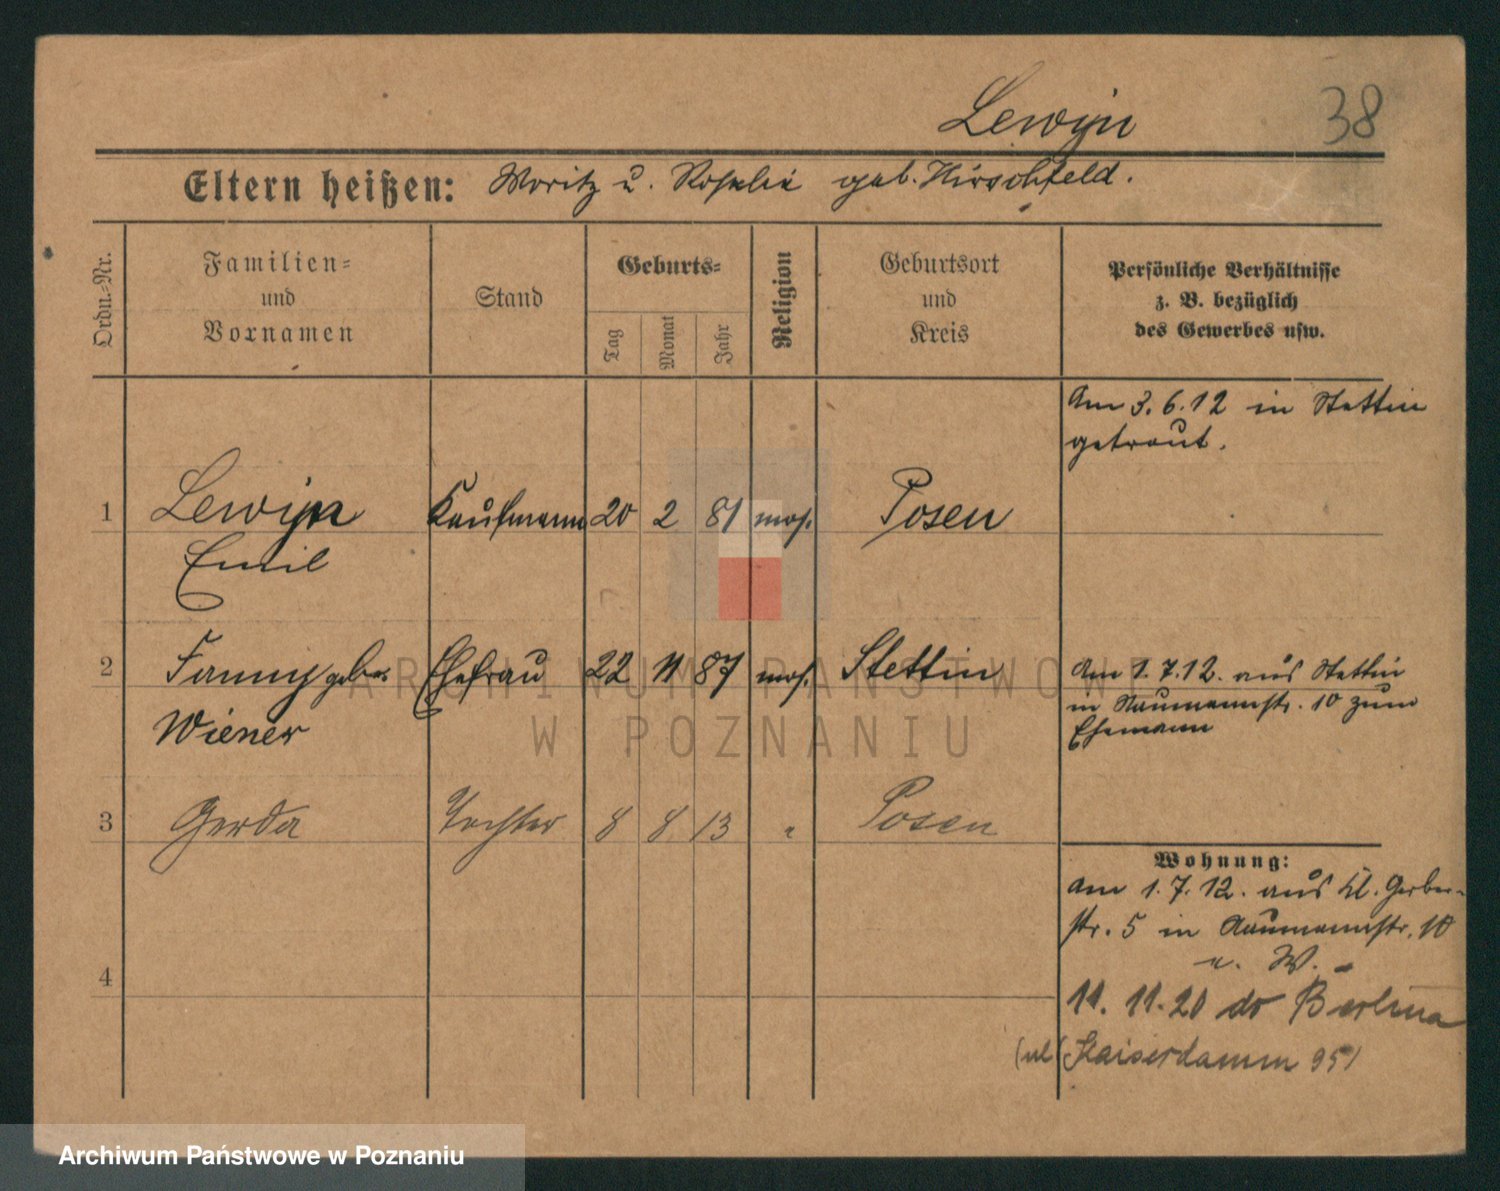 Lewijn
38
Eltern heißen: Moritz u. Rosalie geb. Hirschfeld.
Ordn.-Nr.
Familien-
und
Vornamen
Stand
Geburts-
Tag
Monat
Jahr
Religion
Geburtsort
und
Kreis
Persönliche Verhältnisse
z. B. bezüglich
des Gewerbes usw.
Am 3.6.12 in Stettin
getraut.
1 Lewijn Kaufmann 20 2 81 mos. Posen
Emil
2 Fanny geb. Ehefrau 22 11 87 mos. Stettin
Wiener
Am 1.7.12. aus Stettin
in Naumannstr. 10 zum
Ehemann
3 Gerda Tochter 8 8 13 " Posen
4
Wohnung:
Am 1.7.12. aus Kl. Gerber-
str. 5 in Naumannstr. 10
u. W.
11.11.20 do Berlina
(ul Kaiserdamm 95)
ARCHIWUM PAŃSTWOWE
W POZNANIU
Archiwum Państwowe w Poznaniu